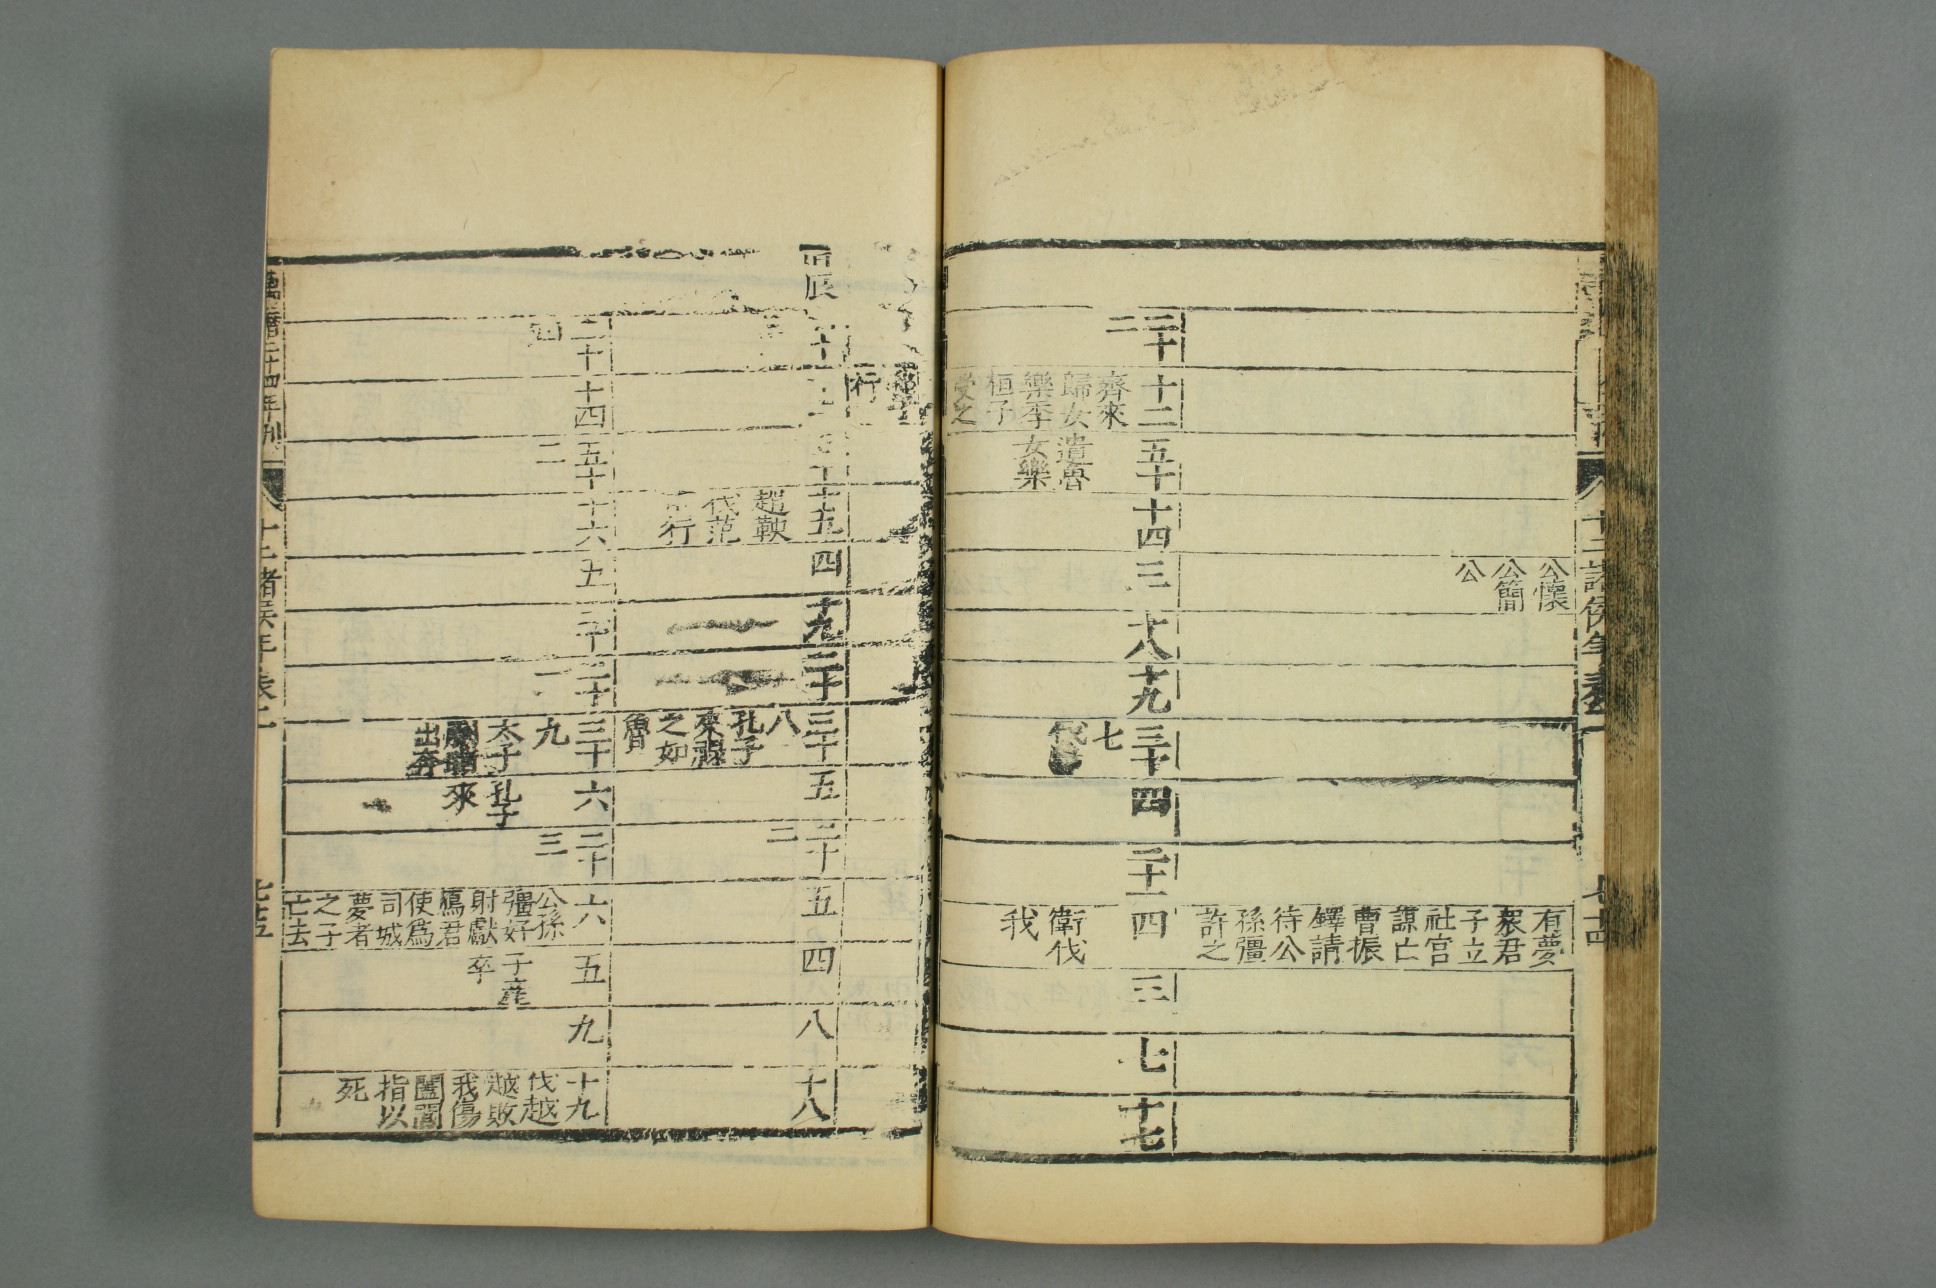 十二諸侯年表
公懷
公簡
公
有夢
衆君
子立
社宮
謀亡
曹振
鐸請
待公
孫彊
許之
二十
二
十二
齊來
歸女
樂季
桓子
受之
五十
遺魯
女樂
十四
三
十八
十九
三十
七
伐
四
二十一
四
衛伐
我
三
七
十七
行
辰
十五
趙鞅
伐范
行
四
十九
二十
三十
八
孔子
來祿
之如
魯
五
二十
二
五
四
八
十八
二十
四
十四
五十
二
十六
五
二十
二十
一
三十
九
太子
蒯聵
出奔
六
孔子
來
二十
三
六
公孫
彊好
射獻
鴈君
使爲
司城
夢者
之子
亡去
五
子產
卒
九
十九
伐越
越敗
我傷
闔閭
指以
死
萬曆二十四年刊
十二諸侯年表二
七十五